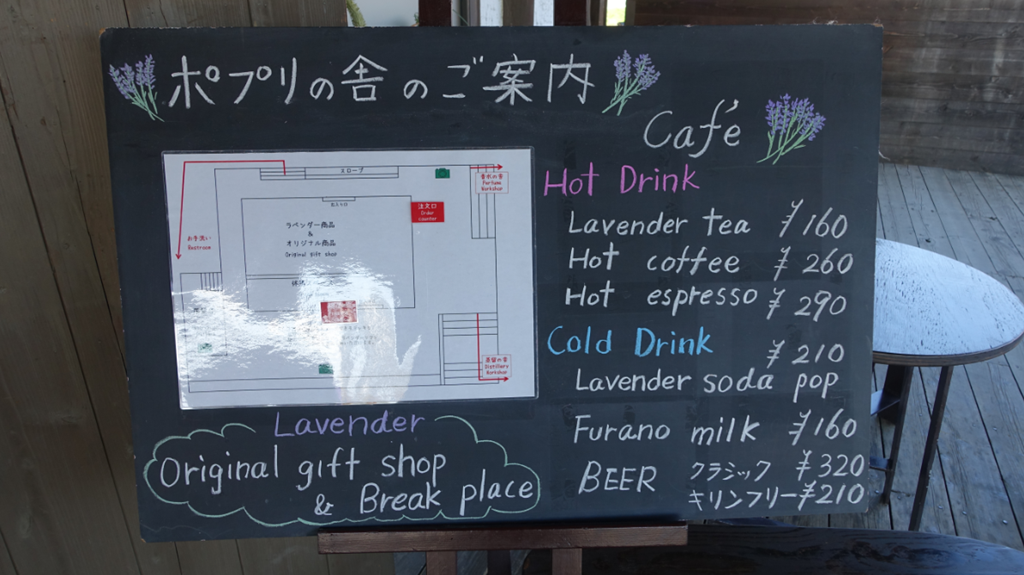 ポプリの舎のご案内
Café
スロープ
香水の舎
Perfume
Workshop
注文口
Order
Counter
お手洗い
Restroom
ラベンダー商品
&
オリジナル商品
Original gift shop
蒸留の舎
Distillery
Workshop
Hot Drink
Lavender tea ¥160
Hot coffee ¥260
Hot espresso ¥290
Cold Drink ¥210
Lavender soda pop
Furano milk ¥160
BEER クラシック ¥320
キリンフリー ¥210
Lavender
Original gift shop
& Break place